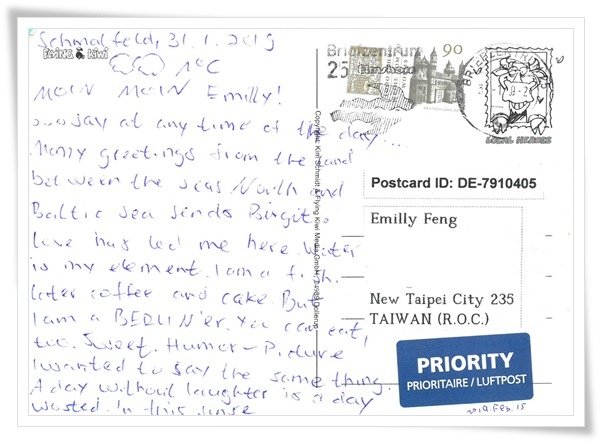 Schmalfeld, 31.1.2019
FLYING KIWI
1°C
MOIN MOIN Emilly!
...say at any time of the day...
Many greetings from the land
between the seas North and
Baltic sea sends Birgit.
Love has led me here. Water
is my element. I am a fish.
Later coffee and cake. But
I am a BERLIN'er. You can eat,
too. Sweet. Humor-Picture
I wanted to say the same thing.
A day without laughter is a day
wasted. In this sense
Copyright: Kim Schmidt & Flying Kiwi Media GmbH, Dollerup
Briefzentrum
25
90
LOCAL HEROES
Postcard ID: DE-7910405
Emilly Feng
New Taipei City 235
TAIWAN (R.O.C.)
PRIORITY
PRIORITAIRE / LUFTPOST
2019.Feb.15